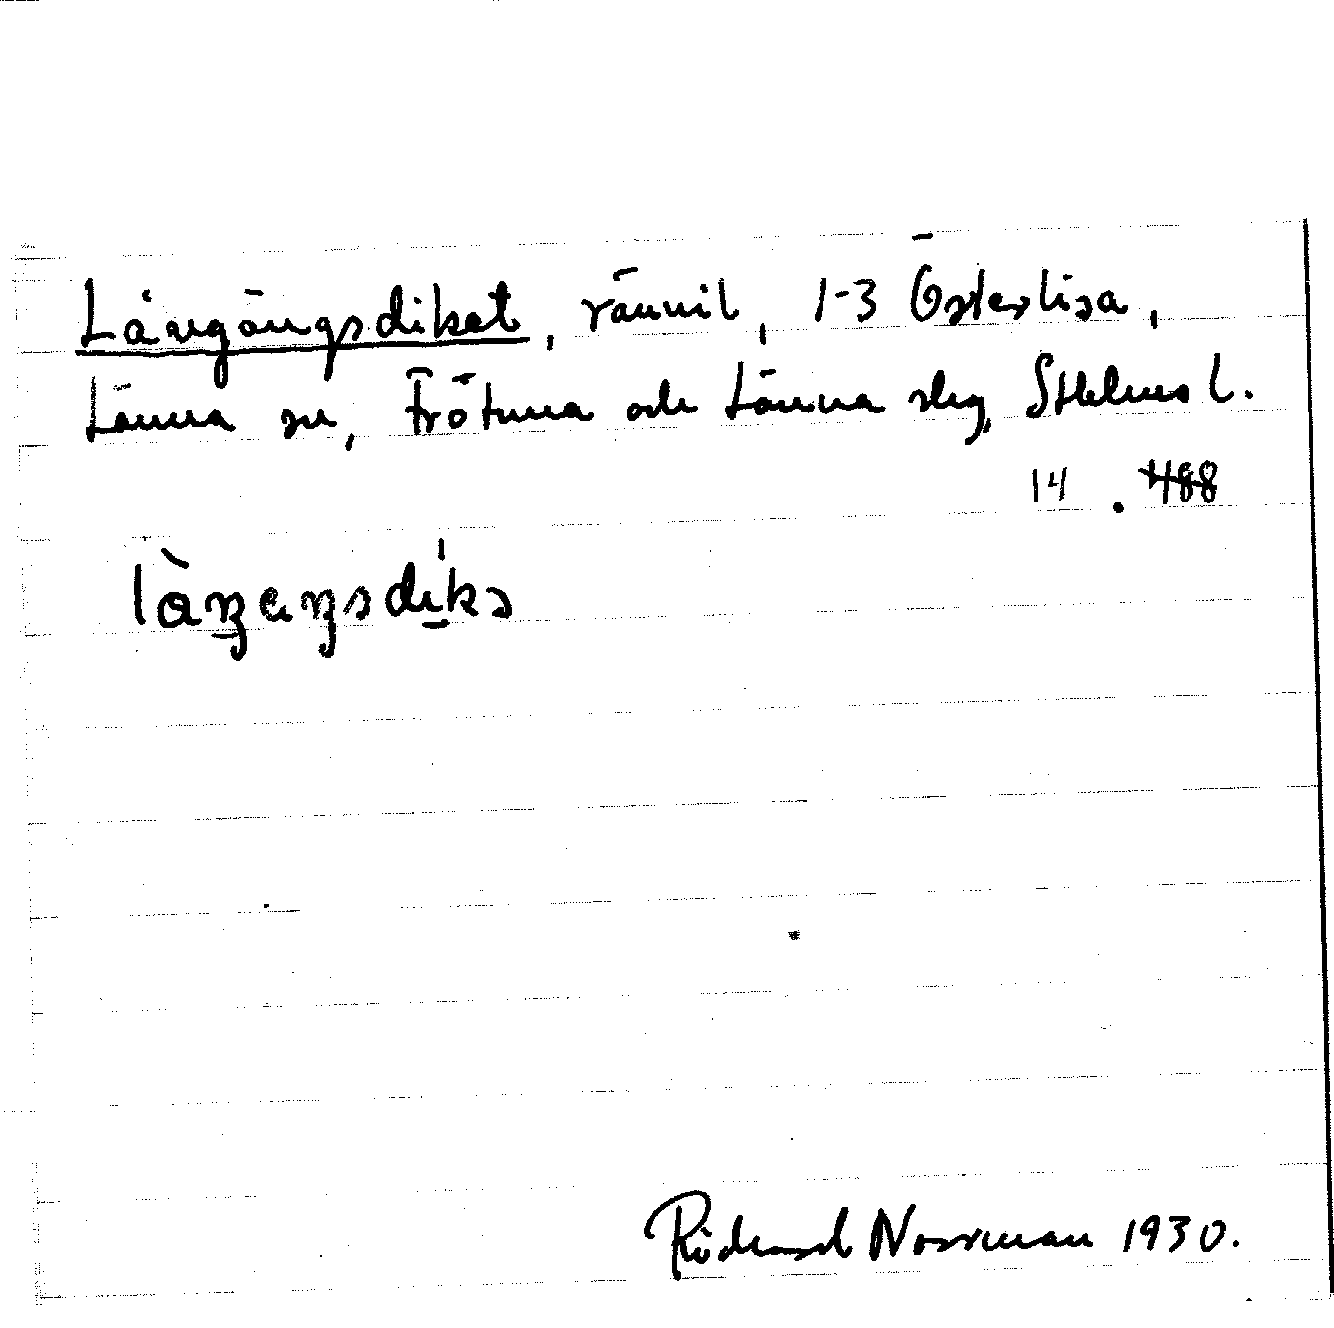 Långängsdiket, rännil, 1-3 Österlisa,
Länna sn, Frötuna och Länna slg, Sthlms l.
14 . 488
Richard Norrman 1930.